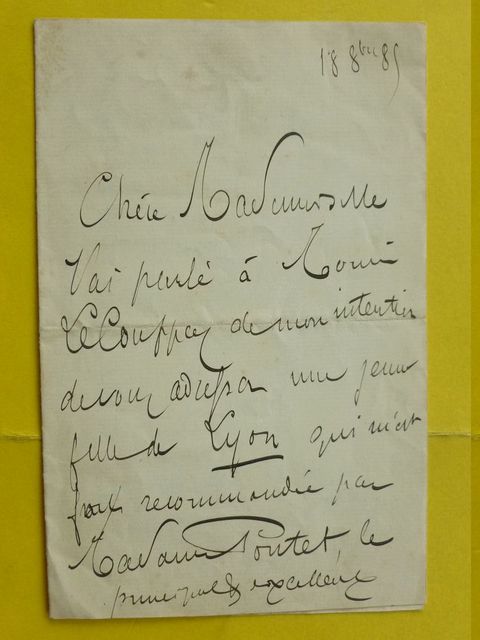 18 8bre 85
Chère Mademoiselle
J'ai parlé à
Le Couppey de mon intention
de vous adresser une jeune
fille de Lyon qui m'est
fort recommandée par
Madame Pontet, le
principal & excellent